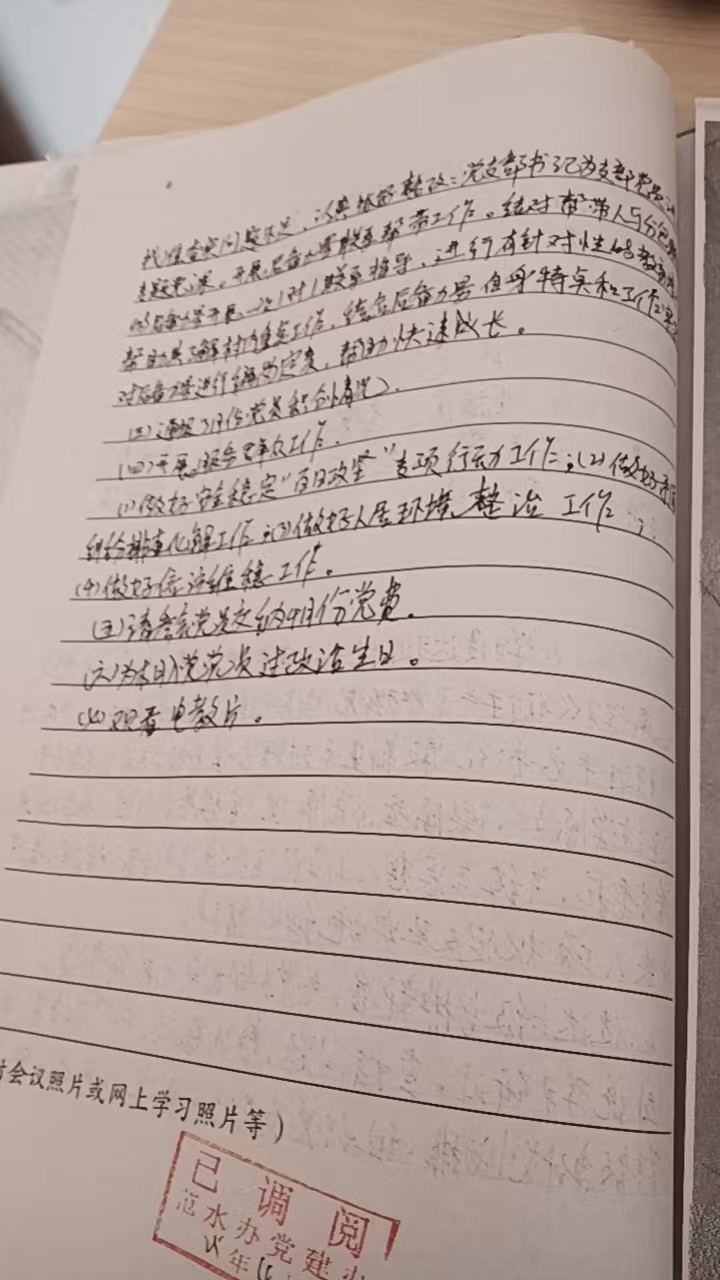 找准查实问题不足，认真抓好整改；党支部书记为支部党员
专题党课。开展后备力量联系帮带工作。结对帮带人与
后备力量开展一次1对1联系指导，进行有针对性的教育
帮助其了解村内重点工作，结合后备力量自身特点和工作实
对后备力量进行编岗定责，帮助快速成长。
(三)通报7月份党员积分情况。
(四)开展服务群众工作。
(1)做好安全稳定"百日攻坚"专项行动工作；(2)做好矛盾
纠纷排查化解工作；(3)做好人居环境整治工作；
(4)做好信访维稳工作。
(五)请参会党员交纳9月份党费。
(六)为本月入党党员过政治生日。
(七)观看电教片。
会议照片或网上学习照片等)
已调阅
范水办党建办
年